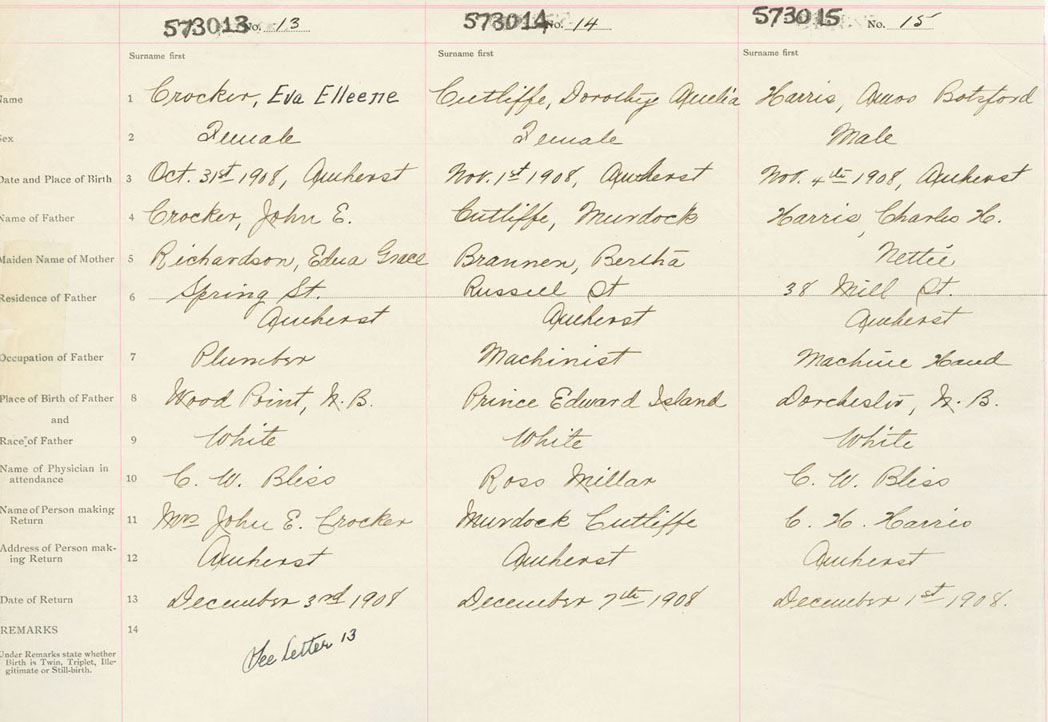 573013 No. 13 573014 No. 14 573015 No. 15
Surname first Surname first Surname first
Name 1 Crocker, Eva Elleene Cutliffe, Dorothy Amelia Harris, Amos Botsford
Sex 2 Female Female Male
Date and Place of Birth 3 Oct. 31st 1908, Amherst Nov. 1st 1908, Amherst Nov. 4th 1908, Amherst
Name of Father 4 Crocker, John E. Cutliffe, Murdock Harris, Charles H.
Maiden Name of Mother 5 Richardson, Edna Grace Brannen, Bertha Nettie
Residence of Father 6 Spring St. Russell St 38 Mill St.
Amherst Amherst Amherst
Occupation of Father 7 Plumber Machinist Machine Hand
Place of Birth of Father 8 Wood Point, N.B. Prince Edward Island Dorchester, N.B.
and
Race of Father 9 White White White
Name of Physician in
attendance 10 C. W. Bliss Ross Millar C. W. Bliss
Name of Person making
Return 11 Mrs John E. Crocker Murdock Cutliffe C. H. Harris
Address of Person mak-
ing Return 12 Amherst Amherst Amherst
Date of Return 13 December 3rd 1908 December 7th 1908 December 1st 1908.
REMARKS 14
See Letter 13
Under Remarks state whether
Birth is Twin, Triplet, Ille-
gitimate or Still-birth.